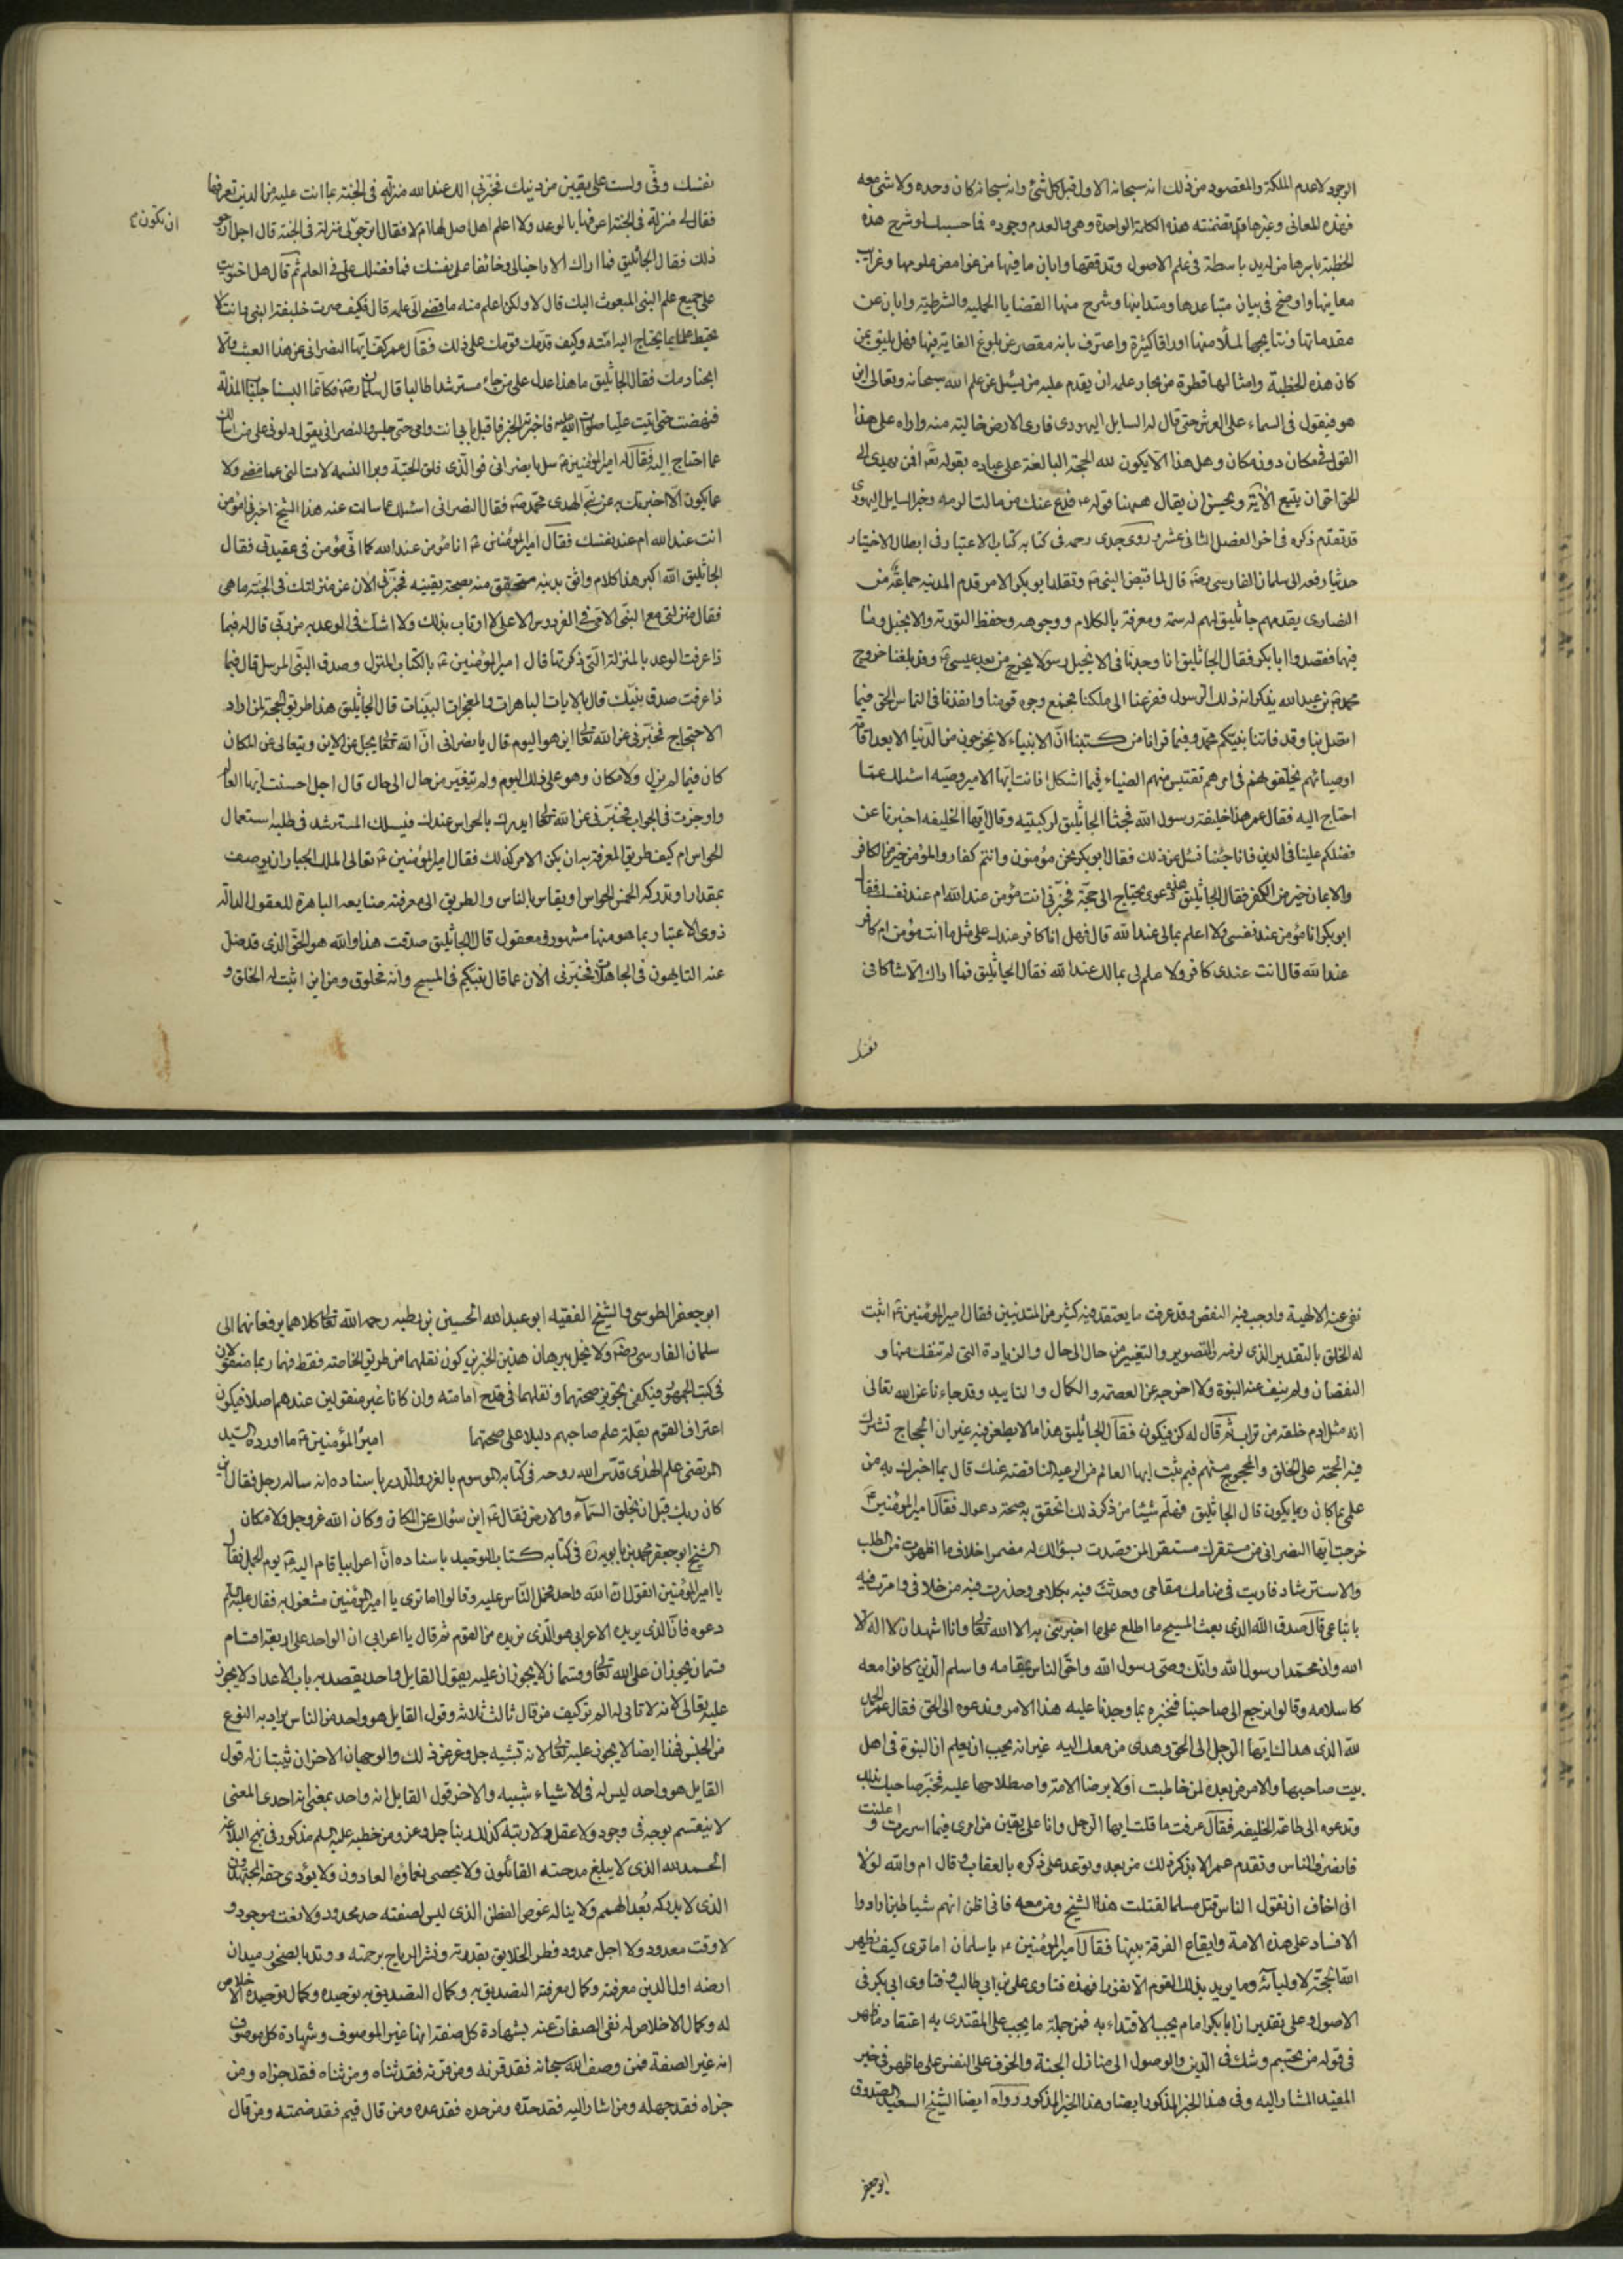 الوجود لاعدم الملكة والمقصود من ذلك انه سبحانه الاول قبل كل شئ وانه سبحانه كان وحده ولا شئ معه
فهذه المعانى وغيرها مما تضمنته هذه الكلمة الواحدة وهى والعدم وجوده فما حسبك لو شرح هذه
الخطبة باسرها من له يد باسطة فى علم الاصول وتدققها وابان ما فيها من غوامض علومها وغرايب
معاينها واوضح فى بيان متباعدها ومتداينها وشرح منها القضايا الحملية والشرطية وابان عن
مقدماتها ونتايجها لملأ منها اوراقا كثيرة واعترف بانه مقصر عن بلوغ الغاية فيها فهل يليق بمن
كان هذه الخطبة وامثالها قطرة من بحار علمه ان يقدم عليه من يسئل عن علم الله سبحانه وتعالى اين
هو فيقول فى السماء على العرش حتى قال له السايل اليهودى فارى الارض خالية منه واراه على هذا
القول فى مكان دون مكان وهل هذا الا يكون لله الحجة البالغة على عباده بقوله تع افمن يهدى الى
الحق احق ان يتبع الاية ويحسن ان يقال ههنا قوله فدع عنك من مالت الرمية وخبر السايل اليهودى
قد تقدم ذكره فى اخر الفصل الثانى عشر وروى جدى رحمه فى كتابه كتاب الاعتبار فى ابطال الاختيار
حديثا رفعه الى سلمان الفارسى رضه قال لما قبض النبى وتقلد ابو بكر الامر قدم المدينة جماعة من
النصارى يقدمهم جاثليق لهم له سمة ومعرفة بالكلام ووجوهه وحفظ التورية والانجيل وما
فيها فقصدوا ابا بكر فقال الجاثليق انا وجدنا فى الانجيل رسولا يخرج من بعد عيسى وقد بلغنا خروج
محمد بن عبد الله يذكر انه ذلك الرسول ففزعنا الى ملكنا فجمع وجوه قومنا وانفذنا فى التماس الحق فيما
اتصل بنا وقد فاتنا نبيكم محمد وفيما قرانا من كتبنا ان الانبياء لا يخرجون من الدنيا الا بعد اقامة
اوصيائهم يخلفونهم فى اممهم تقتبس منهم الضياء فيما اشكل فانت ايها الامير وصيه اسئلك عما
احتاج اليه فقال عمر هذا خليفة رسول الله فجثا الجاثليق لركبتيه وقال ايها الخليفه اخبرنا عن
فضلكم علينا فى الدين فانا جئنا نسئل عن ذلك فقال ابو بكر نحن مؤمنون وانتم كفار والمؤمن خير من الكافر
والايمان خير من الكفر فقال الجاثليق هذه دعوى تحتاج الى حجة فخبرنى انت مؤمن عند الله ام عند نفسك فقال
ابو بكر انا مؤمن عند نفسى ولا اعلم بمالى عند الله قال فهل انا كافر عندك على مثل ما انت مؤمن ام كافر
عند الله قال انت عندى كافر ولا علم لى بمالك عند الله فقال الجاثليق فما اراك الا شاكا فى
نفسك
نفسك وفى ولست على يقين من دينك فخبرنى الك عند الله منزلة فى الجنة بما انت عليه من الدين تعرفها
فقال لى منزلة فى الجنة اعرفها بالوعد ولا اعلم اهل اصل لها ام لا فقال افترجو لى منزلة فى الجنة قال اجل ارجو
ان يكون
ذلك فقال الجاثليق فما اراك الا راجيا لى وخائفا على نفسك فما فضلك على فى العلم ثم قال هل احتويت
على جميع علم النبى المبعوث اليك قال لا ولكن اعلم منه ما قضى الى علمه قال فكيف صرت خليفة النبى وانت لا
تحيط علما بما يحتاج اليه امته وكيف قدمك قومك على ذلك فقال عمر كف ايها النصرانى عن هذا العبث والا
ابحنا دمك فقال الجاثليق ما هذا عدل على من جاء مسترشدا طالبا قال سلمان رضه فكانما البسنا جلباب المذلة
فنهضت حتى اتيت عليا صلوات الله عليه فاخبرته الخبر فاقبل بابى انت وامى حتى جلس والنصرانى يقول دلونى على من اسأله
عما احتاج اليه فقال له امير المؤمنين سل يا نصرانى فوالذى فلق الحبة وبرا النسمه لا تسالنى عما مضى ولا
عما يكون الا اخبرتك به عن نبى الهدى محمد فقال النصرانى اسئلك عما سالت عنه هذا الشيخ اخبرنى امؤمن
انت عند الله ام عند نفسك فقال امير المؤمنين انا مؤمن عند الله كما انى مؤمن فى عقيدتى فقال
الجاثليق الله اكبر هذا كلام واثق بدينه متحقق منه بصحة يقينه فخبرنى الان عن منزلتك فى الجنة ما هى
فقال منزلتى مع النبى الامى فى الفردوس الاعلى لا ارتاب بذلك ولا اشك فى الوعد به من ربى قال له فبما
ذا عرفت الوعد بالمنزلة التى ذكرتها قال امير المؤمنين بالكتاب المنزل وصدق النبى المرسل قال فبما
ذا عرفت صدق نبيك قال بالايات الباهرات والمعجزات البينات قال الجاثليق هذا طريق الحجة لمن اراد
الاحتجاج فخبرنى عن الله تعالى اين هو اليوم قال يا نصرانى ان الله تعالى يجل عن الاين ويتعالى عن المكان
كان فيما لم يزل ولا مكان وهو على ذلك اليوم ولم يتغير من حال الى حال قال اجل احسنت ايها العالم
واوجزت فى الجواب فخبرنى عن الله تعالى ايدرك بالحواس عندك فيسلك المسترشد فى طلبه استعمال
الحواس ام كيف طريق المعرفة به ان يكن الامر كذلك فقال امير المؤمنين تعالى الملك الجبار ان يوصف
بمقدار او تدركه الخمس الحواس او يقاس بالناس والطريق الى معرفته صنايعه الباهرة للعقول الدالة
ذوى الاعتبار بما هو منها مشهود ومعقول قال الجاثليق صدقت هذا والله هو الحق الذى قد ضل
عنه التايهون فى الجاهلات فخبرنى الان عما قال نبيكم فى المسيح وانه مخلوق ومن اين اثبت له الخلق و
نفى عنه الالهية واوجب فيه النقص وقد عرفت ما يعتقد فيه كثير من المتدينين فقال امير المؤمنين اثبت
له الخلق بالتقدير الذى لزمه والتصوير والتغيير من حال الى حال والزيادة التى لم تنفك منها و
النقصان ولم ينف عنه النبوة ولا اخرجه عن العصمه والكمال والتاييد وقد جاءنا عن الله تعالى
انه مثل ادم خلقه من تراب ثم قال له كن فيكون فقال الجاثليق هذا ما لا يطعن فيه غير ان الحجاج تشترك
فيه الحجة على الخلق والمحجوج منهم فبم بنت ايها العالم من الرعية الناقصة عنك قال بما اخبرتك به من
علمى بما كان وبما يكون قال الجاثليق فهلم شيئا من ذكر ذلك اتحقق به صحة دعواك فقال امير المؤمنين
خرجت ايها النصرانى من مستقرك مستفزا لمن قصدت بسؤالك له مضمرا خلاف ما اظهرت من الطلب
والاسترشاد فاريت فى منامك مقامى وحدثت فيه بكلامى وحذرت فيه من خلافى وامرت فيه
باتباعى قال صدقت الله الذى بعث المسيح ما اطلع على ما اخبرتنى به الا الله تعالى وانا اشهد ان لا اله الا
الله وان محمدا رسول الله وانك وصى رسول الله واحق الناس بمقامه واسلم الذين كانوا معه
كاسلامه وقالوا نرجع الى صاحبنا فنخبره بما وجدنا عليه هذا الامر وندعوه الى الحق فقال عمر الحمد
لله الذى هداك ايها الرجل الى الحق وهدى من معك اليه غير انه يجب ان يعلم ان النبوة فى اهل
بيت صاحبها والامر من بعده لمن خاطبت اولا برضا الامة واصطلاحها عليه فخبر صاحبك بذلك
وتدعوه الى طاعة الخليفه فقال عرفت ما قلت ايها الرجل وانا على يقين من امرى فيما اسررت و
اعلنت
فانصرف الناس وتقدم عمر الا يذكر ذلك من بعد وتوعد على ذكره بالعقاب وقال ام والله لولا
انى اخاف ان تقول الناس قتل مسلما لقتلت هذا الشيخ ومن معه فانى اظن انهم شياطين ارادوا
الافساد على هذه الامة وايقاع الفرقة بينها فقال امير المؤمنين يا سلمان اما ترى كيف يظهر
الله الحجة لاوليائه وما يريد بذلك القوم الا نفورا فهذه فتاوى على بن ابى طالب وفتاوى ابى بكر فى
الاصول وعلى تقدير ان ابا بكر امام يجب الاقتداء به فمن جملة ما يجب على المقتدى به اعتقاد ما ظهر
فى قوله من تجسيم وشك فى الدين والوصول الى منازل الجنة والخوف على النفس على ما ظهر فى خبر
المفيد المشار اليه وفى هذا الخبر المذكور ايضا وهذا الخبر المذكور رواه ايضا الشيخ السعيد الصدوق
ابو جعفر
ابو جعفر الطوسى والشيخ الفقيه ابو عبد الله الحسين بن رطبه رحمه الله تعالى كلاهما يرفعانهما الى
سلمان الفارسى رضه ولا نخل ببرهان هذين الخبرين كون نقلهما من طريق الخاصة فقط فهما ربما منقولان
فى كتب الجمهور فيكفى تجويز صحتهما ونقلهما فى قدح امامته وان كانا غير منقولين عندهم اصلا فيكون
اعتراف القوم بقلة علم صاحبهم دليلا على صحتهما امير المؤمنين ما اورده السيد
المرتضى علم الهدى قدس الله روحه فى كتابه الموسوم بالغرر والدرر باسناده انه ساله رجل فقال اين
كان ربك قبل ان يخلق السماء والارض فقال اين سؤال عن المكان وكان الله عز وجل ولا مكان
الشيخ ابو جعفر محمد بن بابويه ره فى كتابه كتاب التوحيد باسناده ان اعرابيا قام اليه يوم الجمل فقال
يا امير المؤمنين اتقول ان الله واحد فحمل الناس عليه وقالوا اما ترى يا امير المؤمنين مشغول به فقال عليه السلم
دعوه فان الذى يريده الاعرابى هو الذى نريده من القوم ثم قال يا اعرابى ان الواحد على اربعة اقسام
قسمان يجوزان على الله تعالى وقسمان لا يجوزان عليه يقول القايل واحد يقصد به باب الاعداد لا يجوز
عليه تعالى لانه لا ثانى له الم تر كيف من قال ثالث ثلاثه وقول القايل هو واحد من الناس يراد به النوع
من الجنس فهذا ايضا لا يجوز عليه تعالى لانه تشبيه جل وعز عن ذلك والوجهان الاخران ثبتا له قول
القايل هو واحد ليس له فى الاشياء شبيه والاخر قول القايل انه واحد بمعنى انه احدى المعنى
لا ينقسم بوجه فى وجود ولا عقل ولا رتبة كذلك ربنا جل وعز ومن خطبه عليه السلم مذكور فى نهج البلاغه
الحمد لله الذى لا يبلغ مدحته القائلون ولا يحصى نعماؤه العادون ولا يؤدى حقه المجتهدون
الذى لا يدركه بعد الهمم ولا يناله غوص الفطن الذى ليس لصفته حد محدود ولا نعت موجود و
لا وقت معدود ولا اجل ممدود فطر الخلايق بقدرته ونشر الرياح برحمته ووتد بالصخور ميدان
ارضه اول الدين معرفته وكمال معرفته التصديق به وكمال التصديق به توحيده وكمال توحيده الاخلاص
له وكمال الاخلاص له نفى الصفات عنه بشهادة كل صفة انها غير الموصوف وشهادة كل موصوف
انه غير الصفة فمن وصف الله سبحانه فقد قرنه ومن قرنه فقد ثناه ومن ثناه فقد جزاه ومن
جزاه فقد جهله ومن اشار اليه فقد حده ومن حده فقد عده ومن قال فيم فقد ضمنه ومن قال